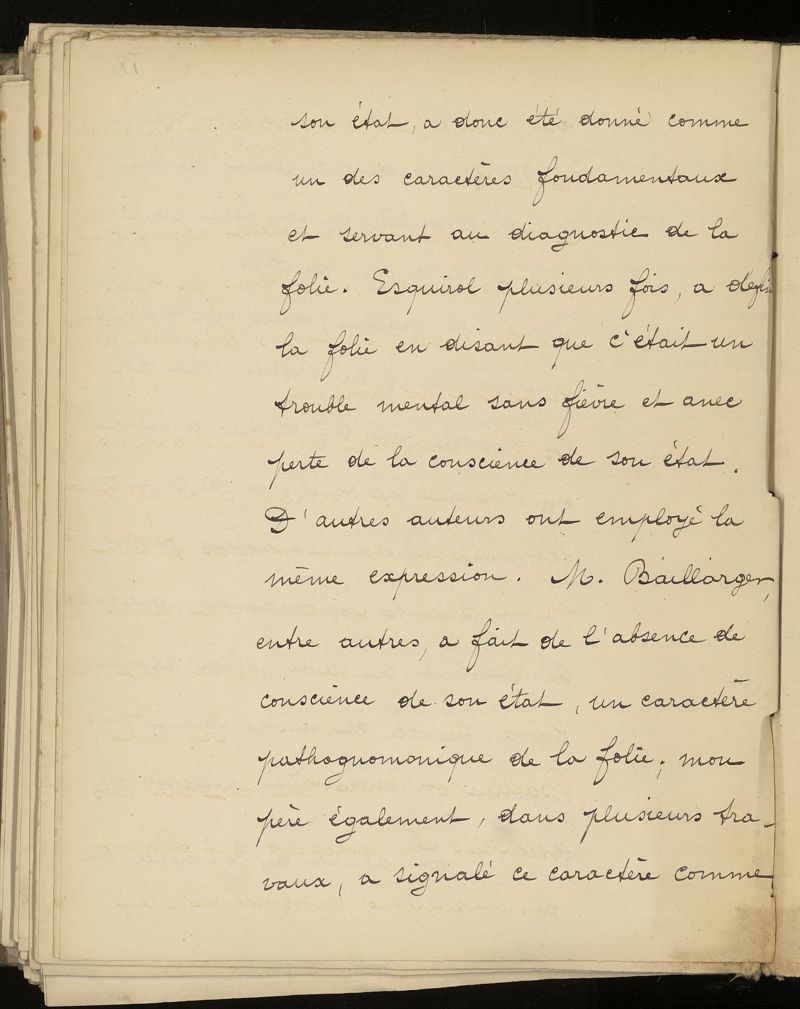 son état, a donc été donné comme
un des caractères fondamentaux
et servant au diagnostic de la
folie. Esquirol plusieurs fois, a défini
la folie en disant que c'était un
trouble mental sans fièvre et avec
perte de la conscience de son état.
D'autres auteurs ont employé la
même expression. M. Baillarger,
entre autres, a fait de l'absence de
conscience de son état, un caractère
pathognomonique de la folie; mon
père également, dans plusieurs tra-
vaux, a signalé ce caractère comme